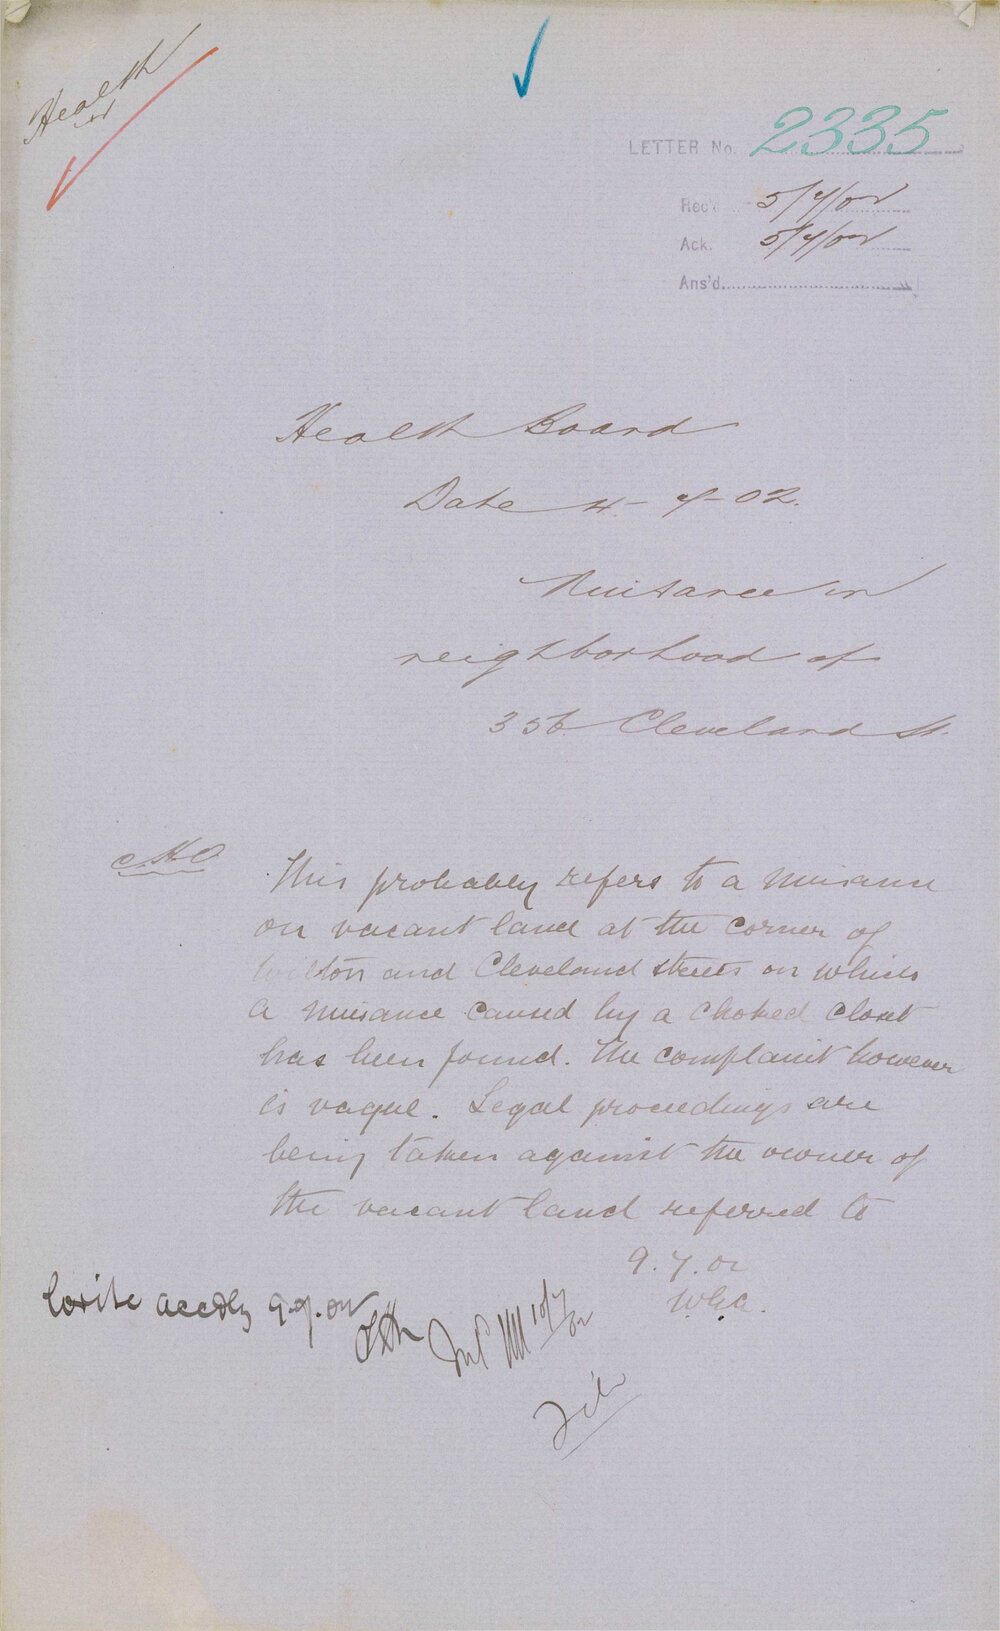 Health
LETTER No. 2335
Rec'd 5/7/02
Ack. 5/7/02
Ans'd
Health Board
Date 4-7-02.
Nuisance in
neighborhood of
356 Cleveland St.
C.H.O.
This probably refers to a nuisance
on vacant land at the corner of
Wilton and Cleveland streets on which
a nuisance caused by a choked closet
has been found. The complaint however
is vague. Legal proceedings are
being taken against the owner of
the vacant land referred to
9.7.02
WGA.
Write accdly 9.7.02
10/7/02
File